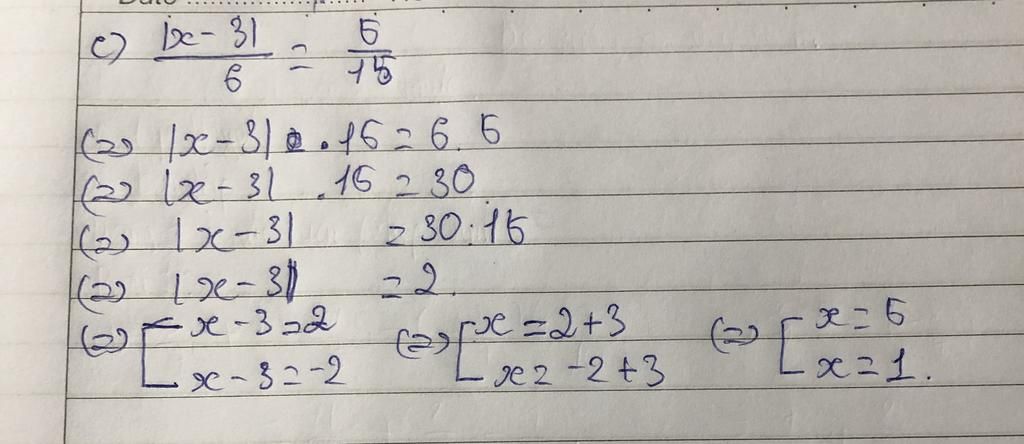 c) |x - 3| / 6 = 5 / 15
(=) |x - 3| . 15 = 6 . 5
(=) |x - 3| . 15 = 30
(=) |x - 3| = 30 : 15
(=) |x - 3| = 2.
(=) [ x - 3 = 2 (=) [ x = 2 + 3 (=) [ x = 5
x - 3 = -2 x = -2 + 3 x = 1.